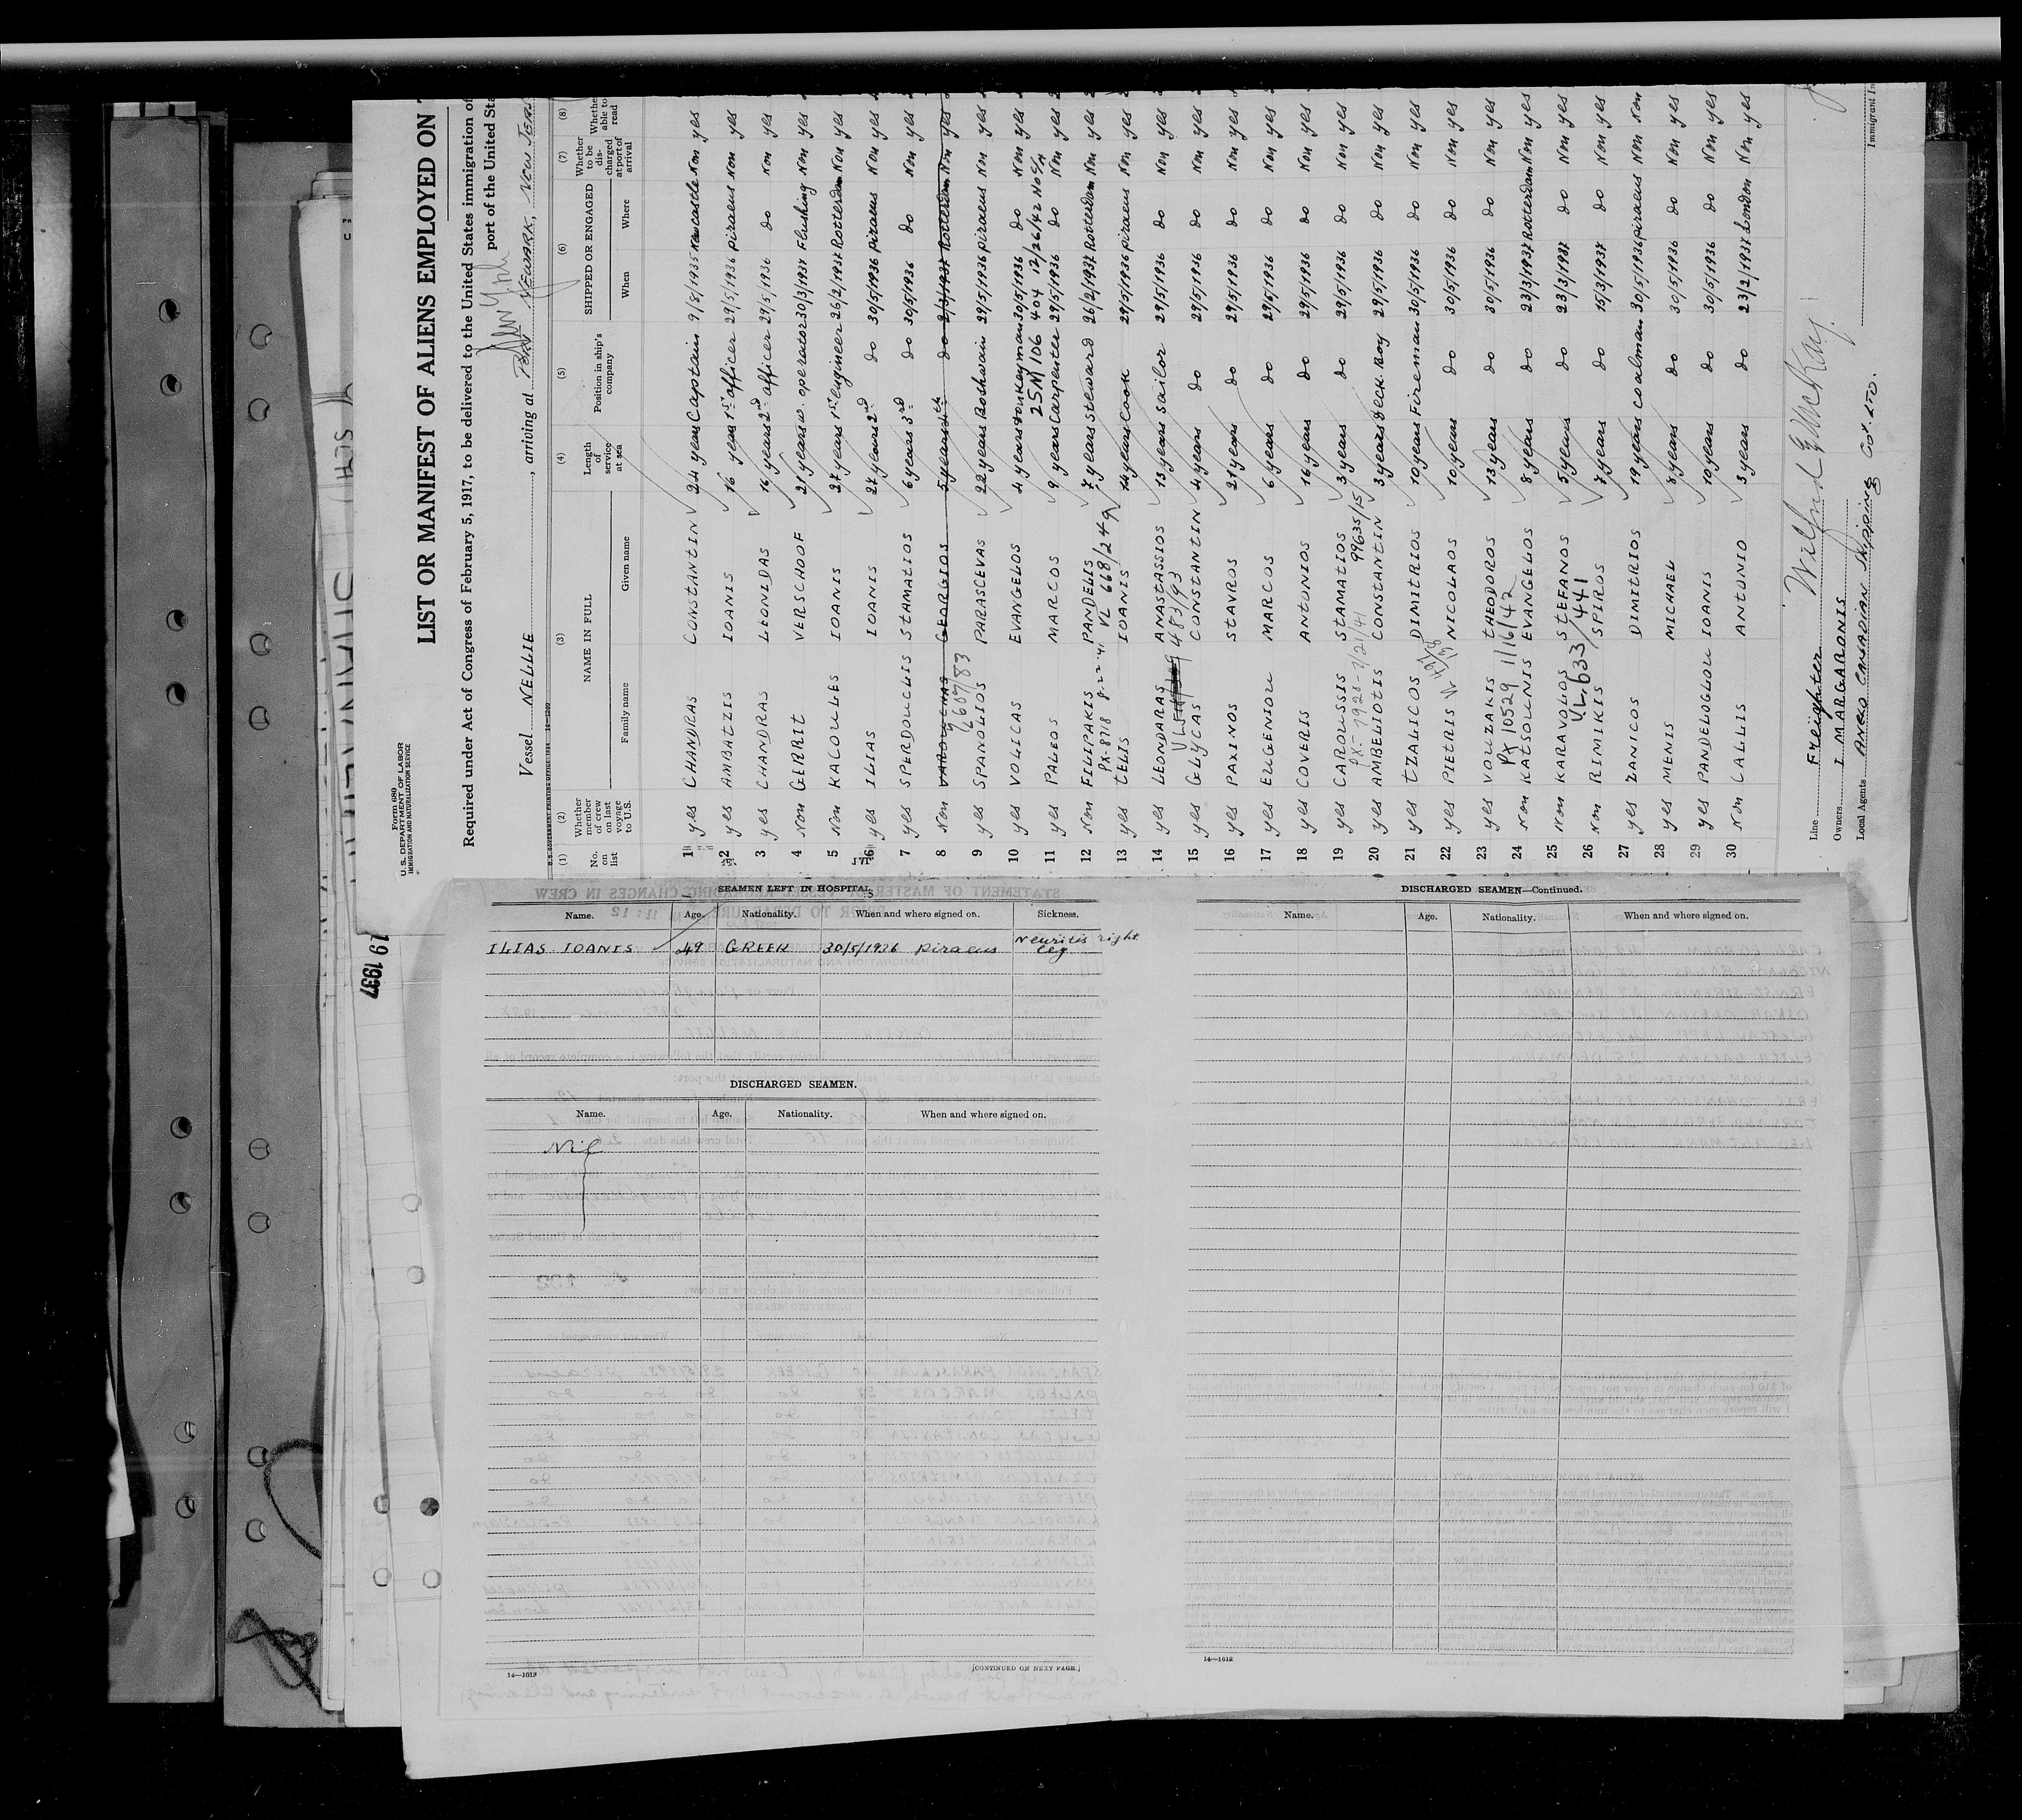 Form 680
U. S. DEPARTMENT OF LABOR
IMMIGRATION AND NATURALIZATION SERVICE
LIST OR MANIFEST OF ALIENS EMPLOYED ON
Required under Act of Congress of February 5, 1917, to be delivered to the United States immigration of
port of the United Sta
Vessel NELLIE , arriving at PORT NEWARK, NEW JERS
(1) (2) (3) (4) (5) (6) (7) (8)
No. on list Whether member of crew on last voyage to U.S. NAME IN FULL Length of service at sea Position in ship's company SHIPPED OR ENGAGED Whether to be discharged at port of arrival Whether able to read
Family name Given name When Where
1 yes CHANDRAS CONSTANTIN 24 years Captain 9/8/1935 Newcastle Non yes
2 yes AMBATZIS IOANIS 16 years 1st officer 29/5/1936 piraeus Non yes
3 yes CHANDRAS LEONIDAS 16 years 2nd officer 29/5/1936 do Non yes
4 Non GERRIT VERSCHOOF 21 years w. operator 30/3/1937 Flushing Non yes
5 Non KACOULES IOANIS 27 years 1st engineer 26/2/1937 Rotterdam Non yes
6 yes ILIAS IOANIS 27 years 2nd do 30/5/1936 piraeus Non yes
7 yes SPERDOUCLIS STAMATIOS 6 years 3rd do 30/5/1936 do Non yes
8 Non VAROUCHAS GEORGIOS 5 years 4th do 2/3/1937 Rotterdam Non yes
9 yes SPANOLIOS PARASCEVAS 22 years Bothwain 29/5/1936 piraeus Non yes
10 yes VOLICAS EVANGELOS 4 years donkeyman 30/5/1936 do Non yes
25M/106 404 12/26/42
11 yes PALEOS MARCOS 9 years Carpenter 29/5/1936 do Non yes
12 Non FILIPAKIS PANDELIS 7 years Steward 26/2/1937 Rotterdam Non yes
PX-8718 8-22-41 VL 668/249
13 yes TELIS IOANIS 14 years Cook 29/5/1936 piraeus Non yes
14 yes LEONDARAS ANASTASSIOS 13 years Sailor 29/5/1936 do Non yes
483/93
15 yes GLYCAS CONSTANTIN 4 years do 29/5/1936 do Non yes
16 yes PAXINOS STAVROS 21 years do 29/5/1936 do Non yes
17 yes EUGENIOU MARCOS 6 years do 29/5/1936 do Non yes
18 yes COVERIS ANTONIOS 16 years do 29/5/1936 do Non yes
19 yes CAROUSSIS STAMATIOS 3 years do 29/5/1936 do Non yes
99635/15
20 yes AMBELIOTIS CONSTANTIN 3 years deck. Boy 29/5/1936 do Non yes
21 yes TZALICOS DIMITRIOS 10 years Fireman 30/5/1936 do Non yes
22 yes PIETRIS NICOLAOS 10 years do 30/5/1936 do Non yes
23 yes VOUZAKIS THEODOROS 13 years do 30/5/1936 do Non yes
PX 10529 1/16/42
24 Non KATSOUNIS EVANGELOS 8 years do 23/3/1937 Rotterdam Non yes
25 Non KARAVOLIOS STEFANOS 5 years do 23/3/1937 do Non yes
VL. 633/441
26 Non RIMIKIS SPIROS 7 years do 15/3/1937 do Non yes
27 yes ZANICOS DIMITRIOS 19 years coalman 30/5/1936 piraeus Non Non
28 yes MENIS MICHAEL 8 years do 30/5/1936 do Non yes
29 yes PANDELOGLOU IOANIS 10 years do 30/5/1936 do Non yes
30 Non CALLIS ANTONIO 3 years do 23/2/1937 London Non yes
Line Freighter
Owners I. MARGARONIS
Local Agents ANGLO CANADIAN Shipping Coy. LTD.
Immigrant In
19 1937
SEAMEN LEFT IN HOSPITAL
Name. Age. Nationality. When and where signed on. Sickness.
ILIAS IOANIS 49 GREEK 30/5/1936 piraeus Neuritis right leg
DISCHARGED SEAMEN.
Name. Age. Nationality. When and where signed on.
Nil
14—1613 [CONTINUED ON NEXT PAGE.]
DISCHARGED SEAMEN—Continued.
Name. Age. Nationality. When and where signed on.
14—1613